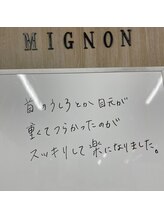 MIGNON
首のうしろとか目元が
重くてつらかったのが
スッキリして楽になりました。